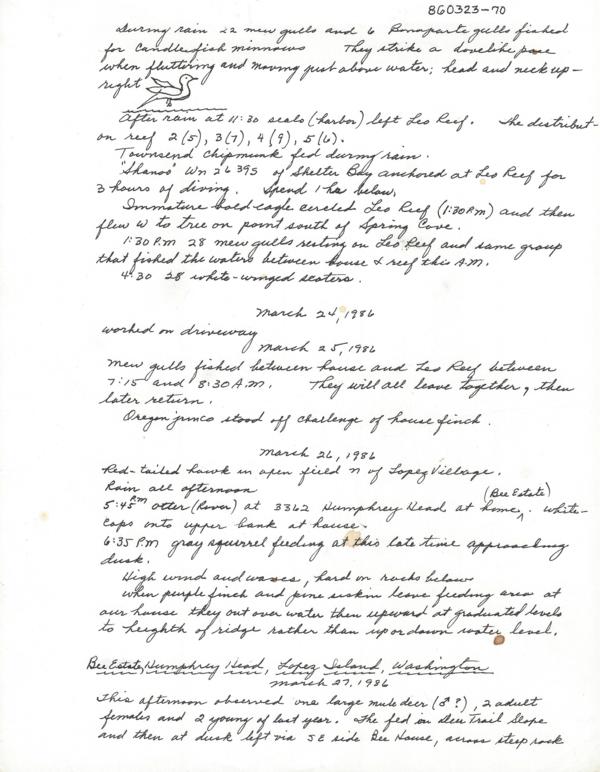 860323-70
During rain 22 mew gulls and 6 Bonaparte gulls fished
for candlefish minnows They strike a dovelike pose
when fluttering and moving just above water; head and neck up-
right
After rain at 11:30 seals (harbor) left Leo Reef. The distribut-
on reef 2(5), 3(7), 4(9), 5(6).
Townsend Chipmunk fed during rain.
"Shanoo" Wn 26395 of Shelter Bay anchored at Leo Reef for
3 hours of diving. Spend 1 hr below.
Immature bald eagle circled Leo Reef (1:30 P.m) and then
flew W to tree on point south of Spring Cove.
1:30 P.m 28 mew gulls resting on Leo Reef and same group
that fished the waters between house & reef this A.M.
4:30 28 white-winged scoters.
March 24, 1986
worked on driveway
March 25, 1986
Mew gulls fished between house and Leo Reef between
7:15 and 8:30 A.M. They will all leave together, then
later return.
Oregon junco stood off challenge of house finch.
March 26, 1986
Red-tailed hawk in open field N of Lopez Village.
Rain all afternoon
(Bee Estate)
5:45 PM otter (River) at 3362 Humphrey Head at home. white-
caps onto upper bank at house.
6:35 P.M gray squirrel feeding at this late time approaching
dusk.
High wind and waves, hard on rocks below
When purple finch and pine siskin leave feeding area at
our house they out over water then upward at graduated levels
to heighth of ridge rather than up or down water level.
Bee Estate, Humphrey Head, Lopez Island, Washington
March 27, 1986
This afternoon observed one large mule deer (♂?), 2 adult
females and 2 young of last year. The fed in Deer Trail Slope
and then at dusk left via SE side Bee House, across steep rock